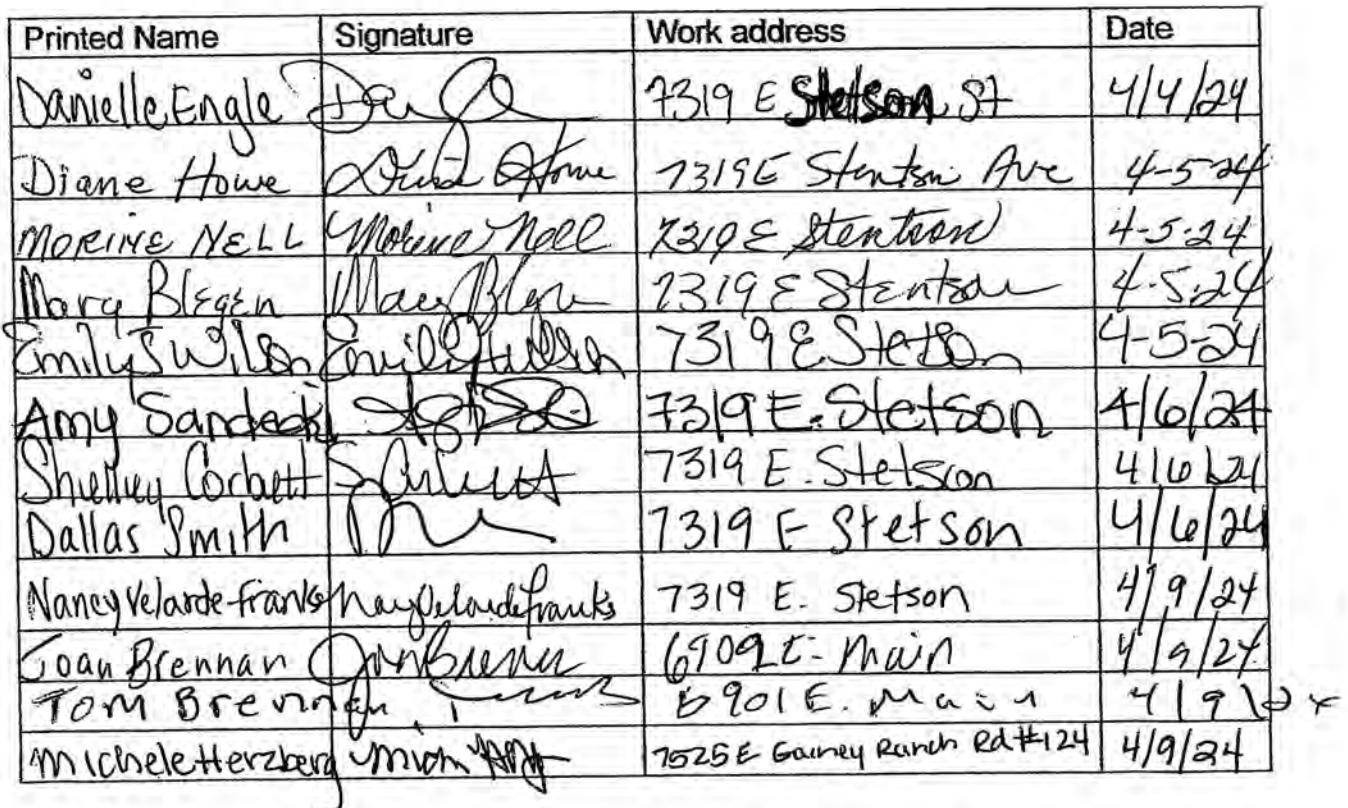 Printed Name Signature Work address Date
Danielle Engle 7319 E Stetson St 4/4/24
Diane Howe Diane Howe 7319 E Stentson Ave 4-5-24
MORINE NELL Morine Nell 7319 E Stentson 4-5-24
Mary Blegen Mary Blegen 7319 E Stentson 4-5-24
Emily S Wilson Emily S Wilson 7319 E. Stetson 4-5-24
Amy Sandecki 7319 E. Stetson 4/6/24
Shelley Corbett S Corbett 7319 E. Stetson 4/6/24
Dallas Smith 7319 E Stetson 4/6/24
Nancy Velarde-Franks Nancy Velarde Franks 7319 E. Stetson 4/9/24
Joan Brennan Joan Brennan 6909 E. Main 4/9/24
Tom Brennan 6901 E. Main 4/9/24
Michele Herzberg 7525 E Gainey Ranch Rd #124 4/9/24